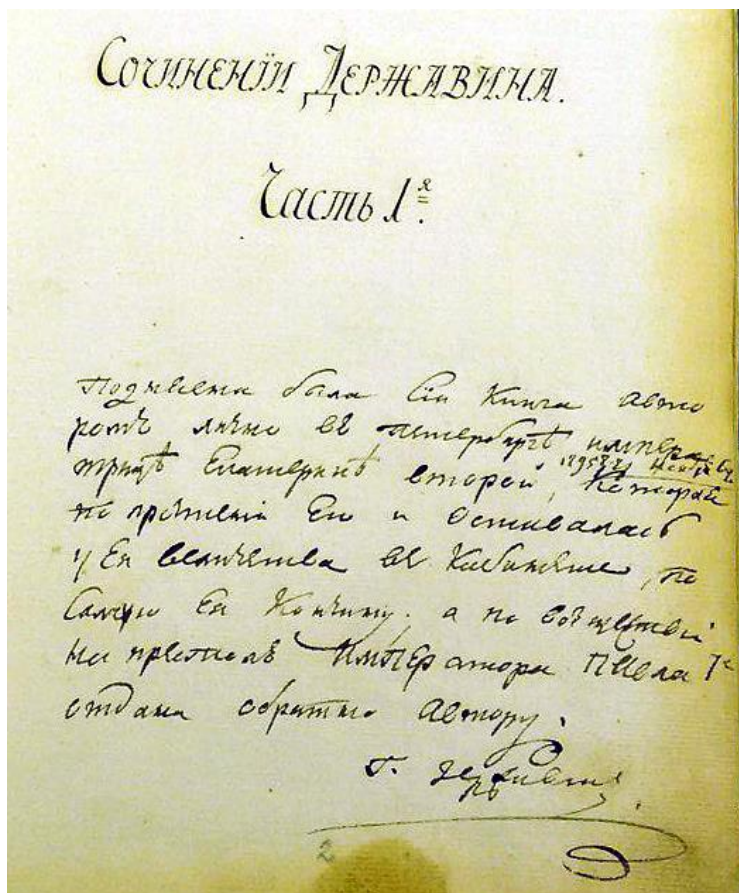 Сочиненїи Державина.
Часть 1я.
Поднесена была Сія Книга авто
ромъ лично въ Петербургѣ импера
трицѣ Екатеринѣ второй, Которая
1795 Ноября
по прочтеніи Ею и оставалась
у Ея величества въ Кабинетѣ, по
Самую Ея Кончину; а по возшествіи
на престолъ Императора Павла Iго
отдана обратно Автору.
Г. Державин
2